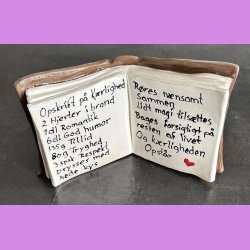 Opskrift på Kærlighed
2 Hjerter i brand
1dl Romantik
6dl God humor
175g Tillid
80g Tryghed
3 spsk Respekt
Drysses med
hede kys
Røres nænsomt
Sammen
Lidt magi tilsættes
Bages forsigtigt på
resten af livet
Og Kærligheden
Opstår